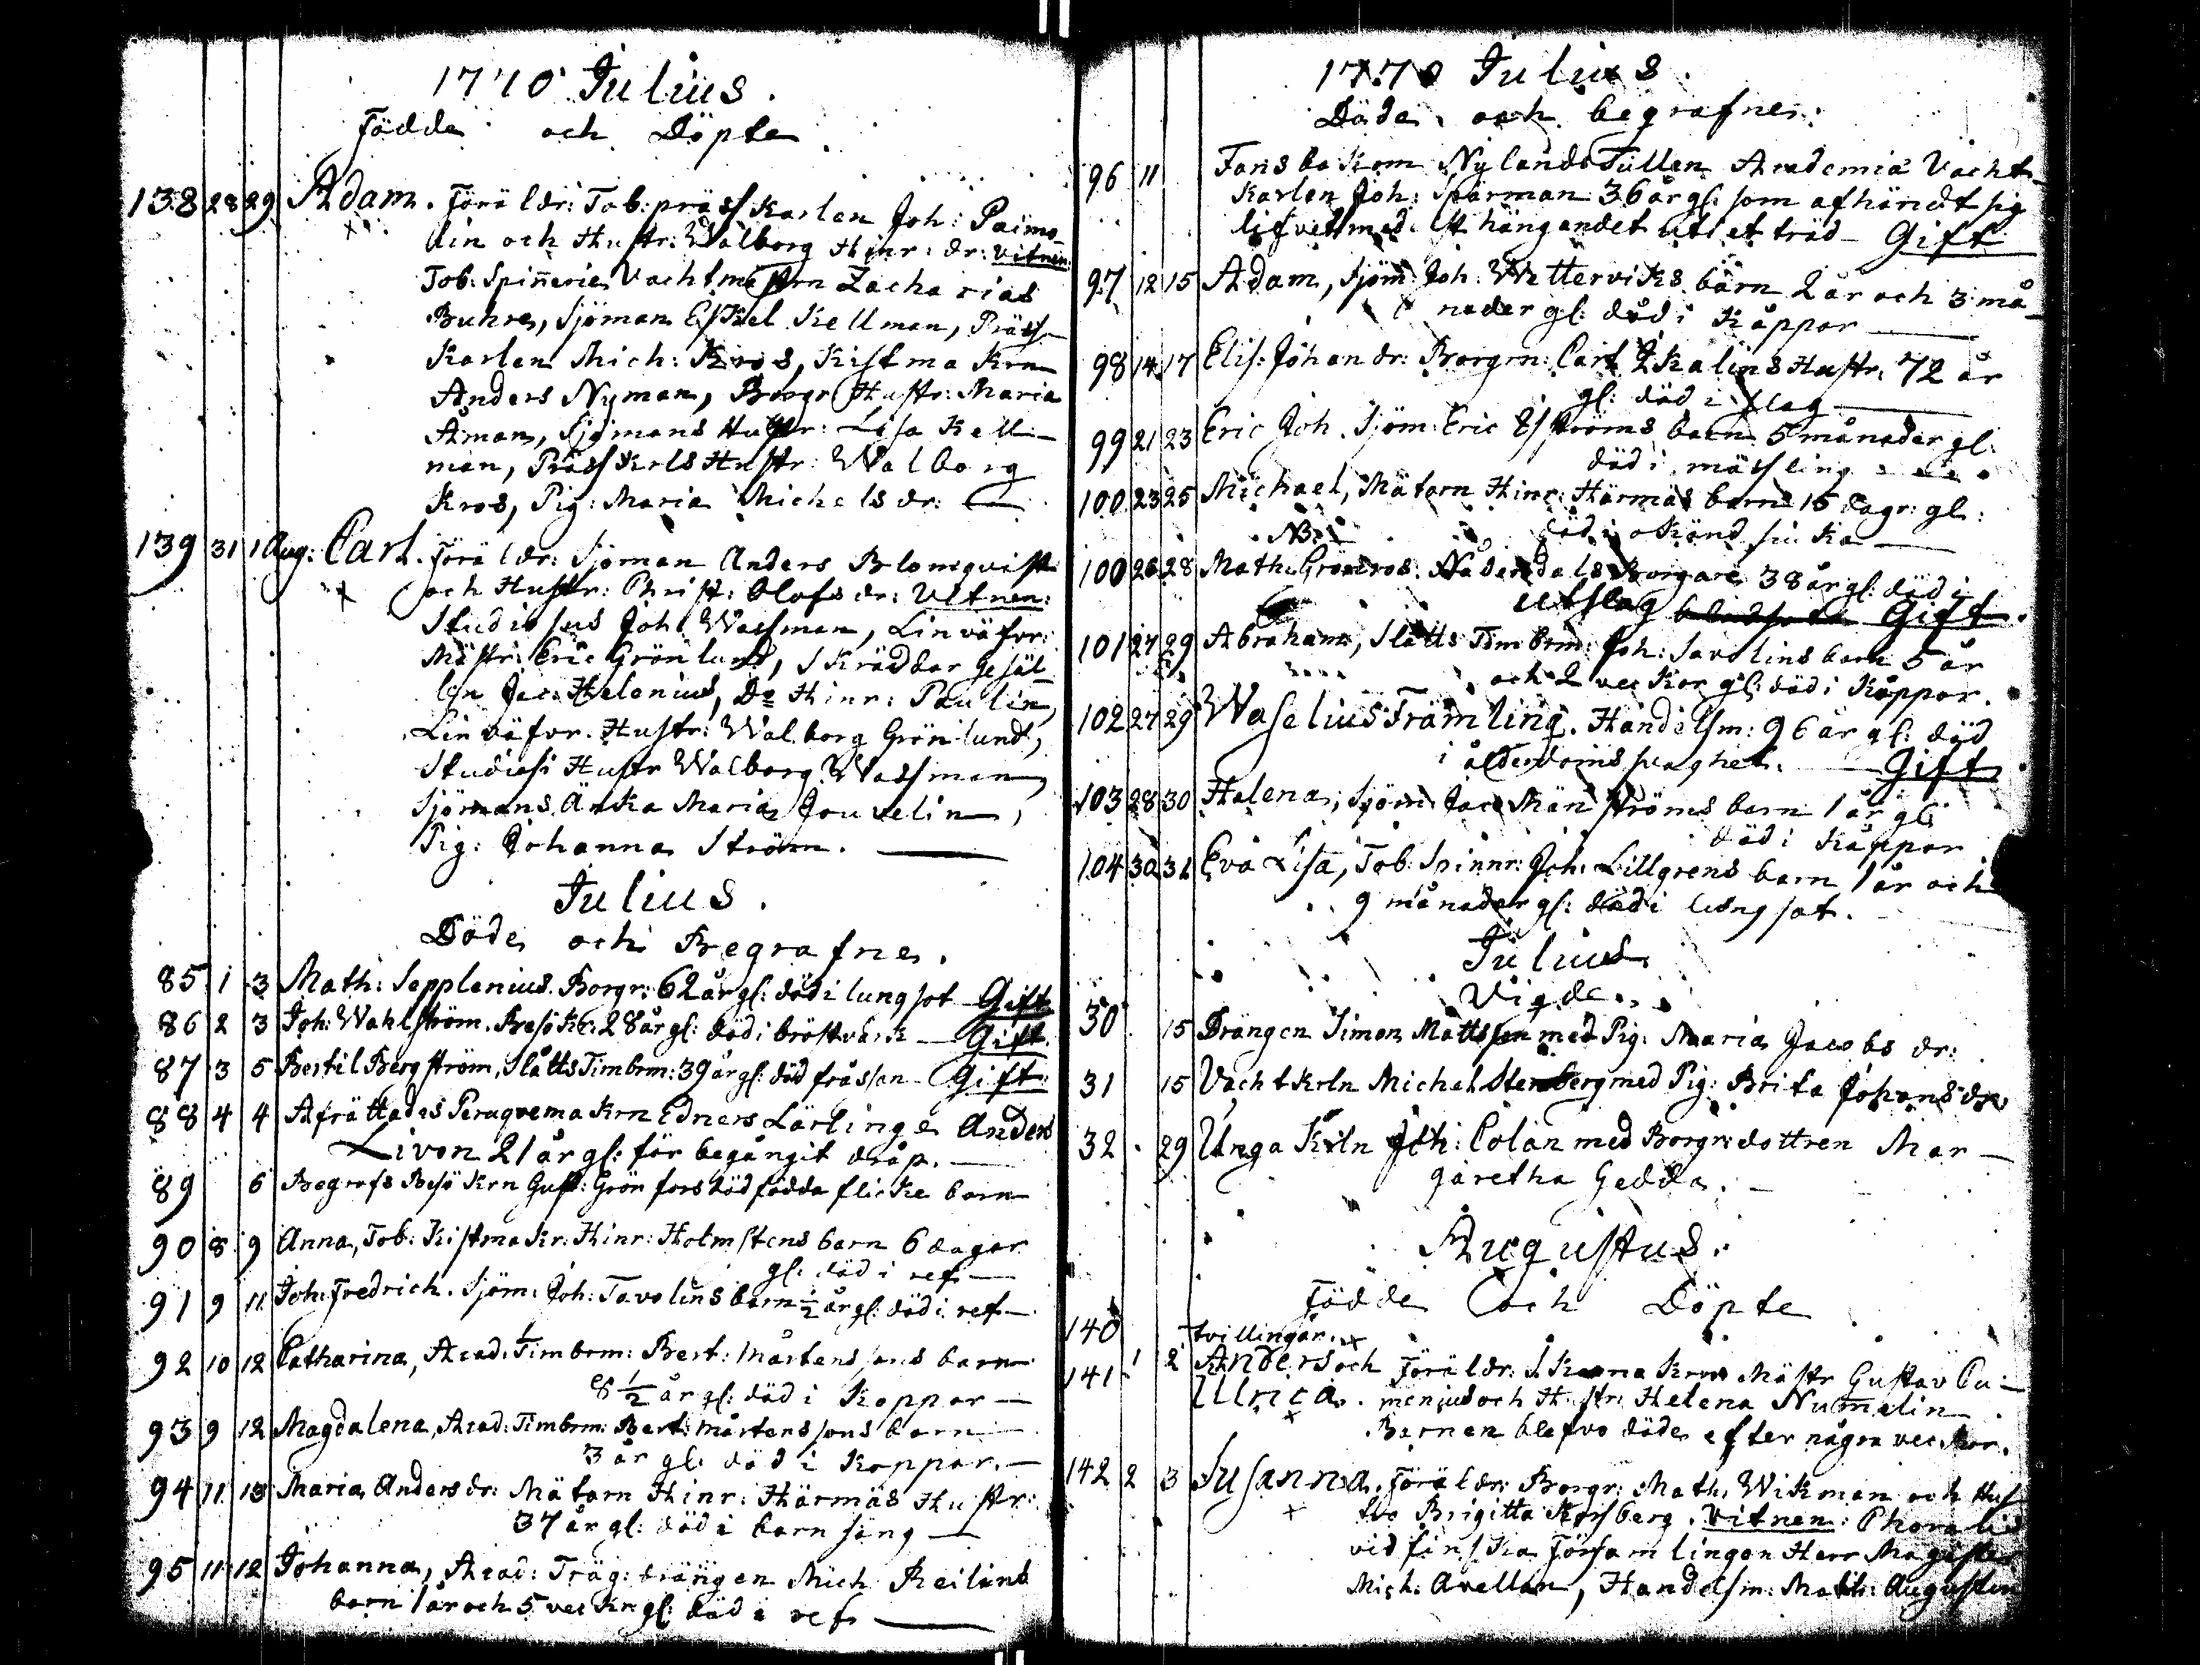 1770 Julius.
Födde och Döpte
138 28 29 Adam. Föräldr: Tob: präss Karlen Joh: Paimo-
lin och Hustr: Walborg Hinr: dr: Vitnen:
Tob: Spinneri Vachtmestrn Zacharias
Buhre, Sjöman Eskel Kellman, Präss-
Karlen Mich: Kros, Kistmakrn
Anders Nyman, Borgr Hustr: Maria
Åman, Sjömans Hustr: Lisa Kell-
man, Präss Krls Hustr: Walborg
Kros, Pig: Maria Michels dr:
139 31 1 Aug: Carl. Föräldr: Sjöman Anders Blomqvist
och Hustr: Christ: Olofs dr: Vitnen:
Studiosus Joh: Wassman, Linväfvr:
Mästr: Eric Grönlund, Skräddar Gesäl-
len Jac: Helenius, Do Hinr: Paulin,
Linväfvr. Hustr: Walborg Grönlund,
Studiosi Hustr Walborg Wassman,
Sjömans Änka Maria Jouselin,
Pig: Johanna Ström.
Julius.
Döde och Begrafne.
85 1 3 Math: Sepplenius. Borgr: 62 år gl: död i lungsot Gift
86 2 3 Joh: Wahlström. Besökr: 28 år gl: död i bröstvärk Gift
87 3 5 Bertil Bergström, Slåtts Timbrm: 39 år gl: död fråssan Gift
88 4 4 Afrättades Peruqvemakrn Edners Lärlinge Anders
Livon 21 år gl: för begångit dråp.
89 6 Begrofs Besökrn Gust: Grönfors dödfödda flicke barn
90 8 9 Anna, Tob: Kistmakr: Hinr: Holmstens barn 6 dagar
gl: död i ref
91 9 11 Joh: Fredrich. Sjöm: Joh: Tavolins barn 1/2 år gl: död i ref
92 10 12 Catharina, Acad: Timbrm: Bert: Mårtenssons barn
8 1/2 år gl: död i Koppor
93 9 12 Magdalena, Acad: Timbrm: Bert: Mårtenssons barn
3 år gl: död i Koppor.
94 11 13 Maria Anders dr: Mätarn Hinr: Härmäs Hustr:
37 år gl: död i barnsäng
95 11 12 Johanna, Acad: Träg: drängen Mich Reilins
barn 1 år och 5 veckr gl: död i ref
1770 Julius.
Döde och begrafne:
96 11 Fans bakom Nylands Tullen Academiæ Vacht-
Karlen Joh: Sparman 36 år gl: som afhändt sig
lifvet med hängandet uti et träd Gift
97 12 15 Adam, Sjöm: Joh: Wetterviks barn 2 år och 3 må-
nader gl: död i Kåppor
98 14 17 Elis: Johan dr: Borgrn: Carl Ekalins Hustr: 72 år
gl: död i slag
99 21 23 Eric Joh. Sjöm: Eric Elströms barn 5 månader gl:
död i mässling
100 23 25 Michael, Mätarn Hinr: Härmäs barn 15 dagr: gl:
död i okänd siuka
NB:
100 26 28 Math: Grönros. Nådendals Borgare 38 år gl: död i
utslag Gift.
101 27 29 Abraham, Slåtts Timbrm: Joh: Savolins barn 5 år
och 2 veckor gl: död i Kåppor.
102 27 29 Waselius Främling. Handelsm: 96 år gl: död
i ålderdoms svaghet. Gift
103 28 30 Helena, Sjöm: Jac: Månströms barn 1 år gl:
död i Kåppor
104 30 31 Eva Lisa, Tob: Spinnr: Joh: Lillgrens barn 1 år och
9 månader gl: död i lungsot.
Julius
Vigde.
30 15 Drängen Simon Mattsson med Pig: Maria Jacobs dr:
31 15 Vachtkrln Michel Stenberg med Pig: Brita Johans dr
32 29 Unga Krln Joh: Colan med Borgr: dottren Mar-
garetha Gedda.
Augustus.
Födde och Döpte
140 tvillingar.
141 1 2 Anders och Föräldr: Mästr Gustav Cu-
Ulrica. menius och Hustr: Helena Numelin
Barnen blefvo döde efter några veckor.
142 2 3 Susanna. Föräldr: Borgr: Math: Wikman och Hus
tro Brigitta Korsberg. Vitnen:
vid finska Församlingen Herr Magister
Mich: Avellan, Handelsm: Math: Augustin